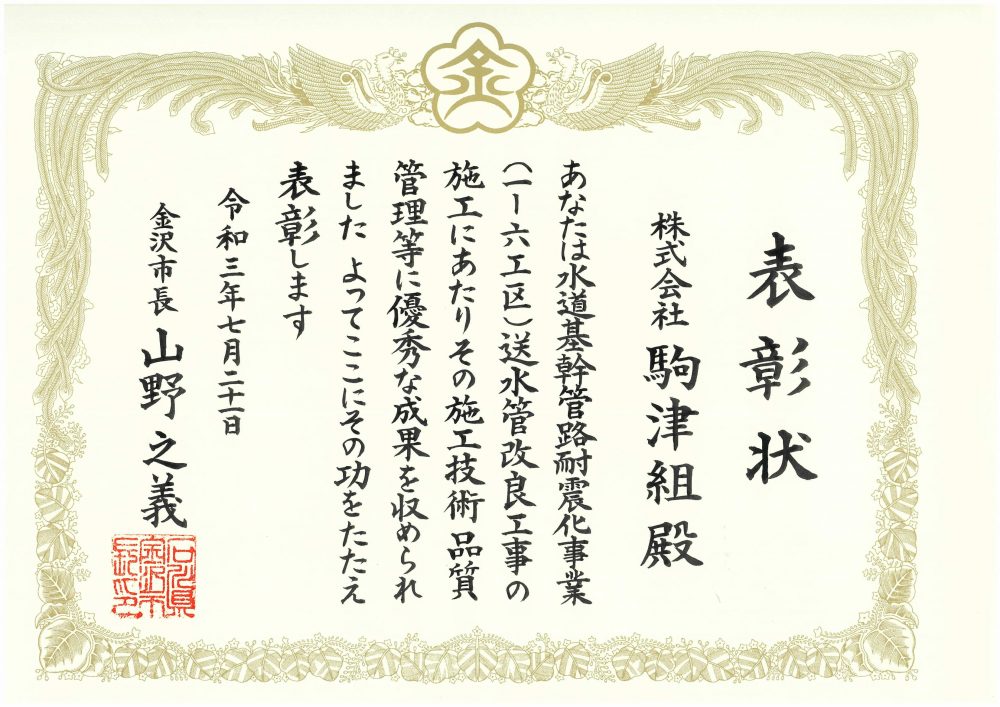 表彰状
株式会社 駒津組 殿
あなたは水道基幹管路耐震化事業
(一ー六工区)送水管改良工事の
施工にあたりその施工技術 品質
管理等に優秀な成果を収められ
ました よってここにその功をたたえ
表彰します
令和三年七月二十一日
金沢市長 山野之義